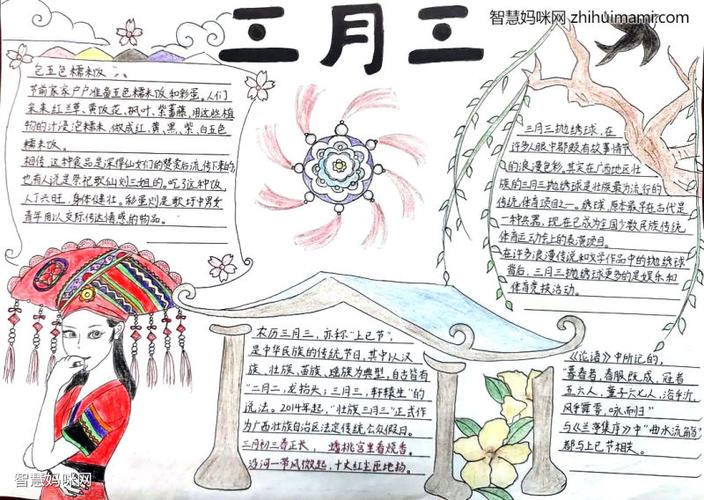 三月三
智慧妈咪网 zhihuimami.com
包五色糯米饭
节前家家户户准备五色糯米饭和彩蛋。人们
采来红兰草、黄饭花、枫叶、紫蕃藤，用这些植
物的汁浸泡糯米，做成红、黄、黑、紫、白五色
糯米饭。
相传，这种食品是深得仙女们的赞赏后流传下来的；
也有人说是祭祀歌仙刘三姐的。吃了这种饭，
人丁兴旺，身体健壮。彩蛋则是歌圩中男女
青年用以交际传达情感的物品。
三月三抛绣球，在
许多人眼中都颇有故事情节
的浪漫色彩，其实在广西地区壮
族的三月三抛绣球是壮族最为流行的
传统体育项目之一。绣球，原本最早在古代是
一种兵器，现在已成为全国少数民族传统
体育运动会上的表演项目。
在许多浪漫传说和文学作品中的抛绣球
背后，三月三抛绣球更多的是娱乐和
体育竞技活动。
农历三月三，亦称“上巳节”，
是中华民族的传统节日，其中以汉
族、壮族、苗族、瑶族为典型，自古皆有
“二月二，龙抬头；三月三，轩辕生”的
说法。2014年起，“壮族三月三”正式作
为广西壮族自治区法定传统公众假日。
三月初三春正长，蟠桃宫里看烧香。
沿河一带风微起，十丈红尘匝地扬。
《论语》中所记的，
“暮春者，春服既成，冠者
五六人，童子六七人，浴乎沂，
风乎舞雩，咏而归”
与《兰亭集序》中“曲水流觞”
都与上巳节相关。
智慧妈咪网